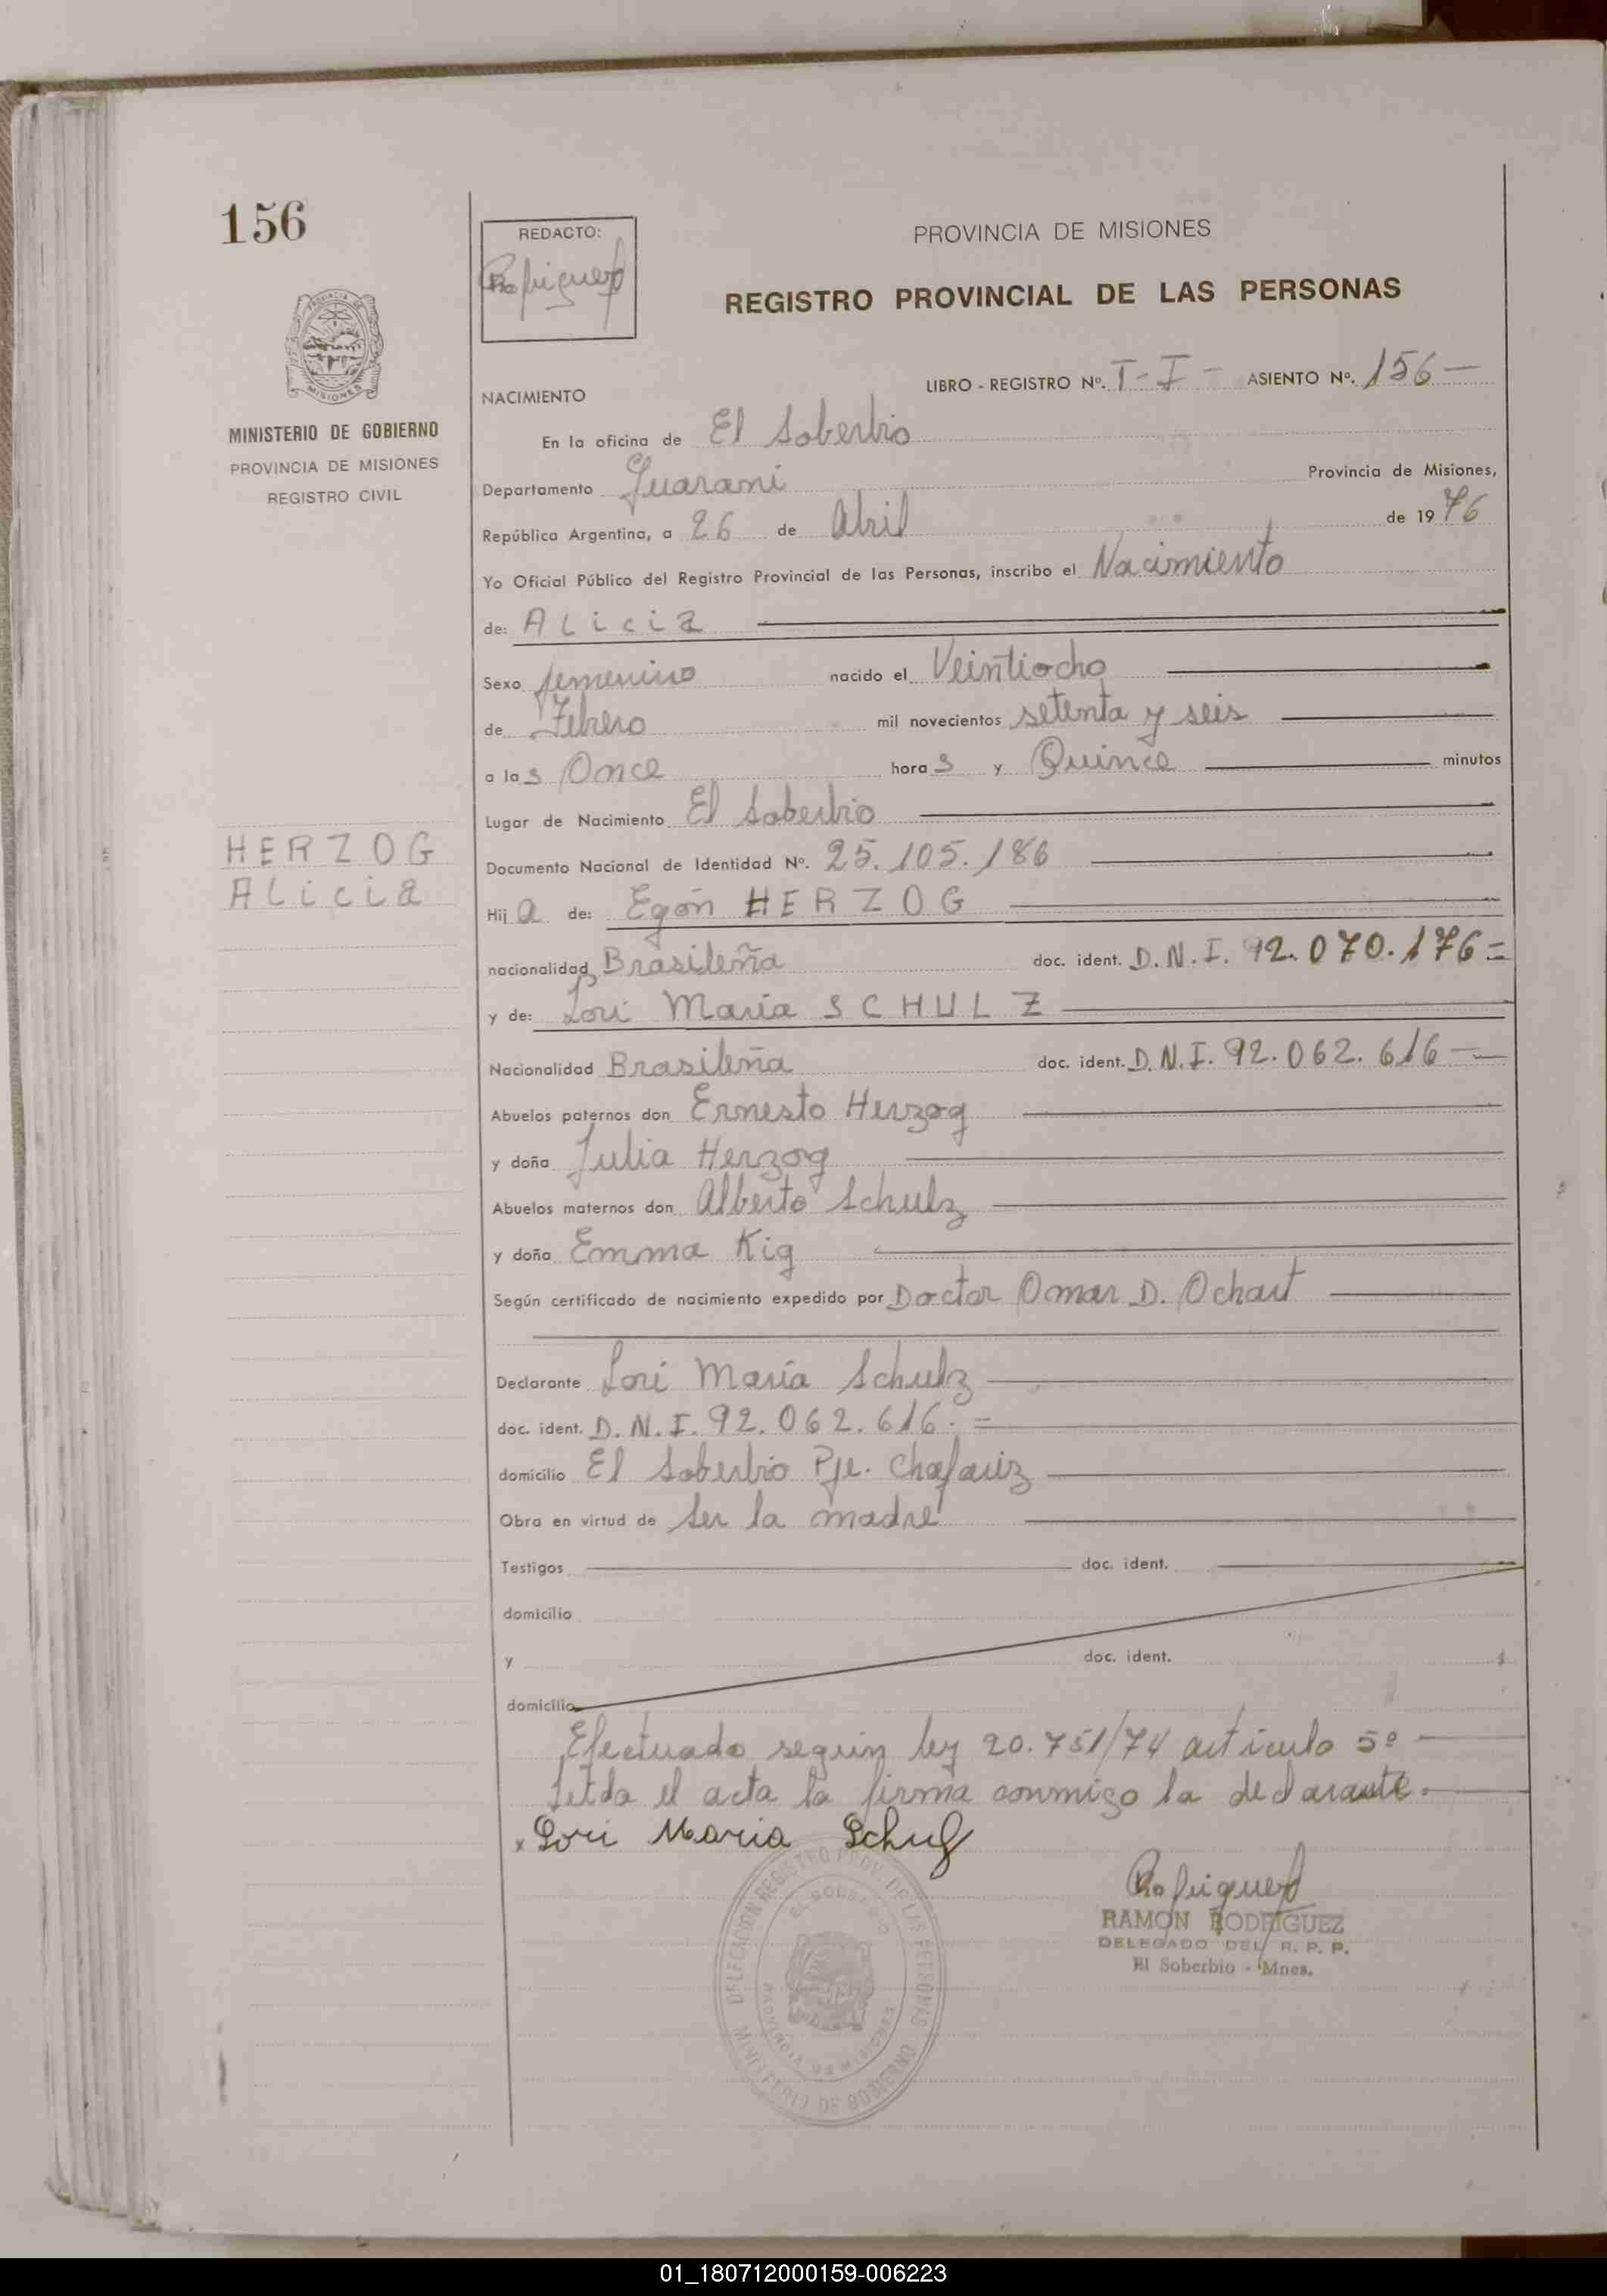 156
REDACTO:
Rodriguez
PROVINCIA DE MISIONES
REGISTRO PROVINCIAL DE LAS PERSONAS
MINISTERIO DE GOBIERNO
PROVINCIA DE MISIONES
REGISTRO CIVIL
LIBRO - REGISTRO Nº. T-I- ASIENTO Nº. 156-
NACIMIENTO
En la oficina de El Soberbio
Departamento Guarani Provincia de Misiones,
República Argentina, a 26 de Abril de 1976
Yo Oficial Público del Registro Provincial de las Personas, inscribo el Nacimiento
de: ALicia
Sexo femenino nacido el Veintiocho
de Febrero mil novecientos setenta y seis
a las Once horas y Quince minutos
Lugar de Nacimiento El Soberbio
HERZOG
ALicia
Documento Nacional de Identidad Nº. 25.105.186
Hija de: Egón HERZOG
nacionalidad Brasileña doc. ident. D.N.I. 92.070.176=
y de: Lori María SCHULZ
Nacionalidad Brasileña doc. ident. D.N.I. 92.062.616
Abuelos paternos don Ernesto Herzog
y doña Julia Herzog
Abuelos maternos don Alberto Schulz
y doña Emma Kig
Según certificado de nacimiento expedido por Doctor Omar D. Ochart
Declarante Lori María Schulz
doc. ident. D.N.I. 92.062.616.=
domicilio El Soberbio Pje. Chafariz
Obra en virtud de Ser la madre
Testigos doc. ident.
domicilio
y doc. ident.
domicilio
Efectuado según ley 20.751/74 artículo 5º
Leída el acta la firma conmigo la declarante.
x Lori Maria Schulz
Rodriguez
RAMON RODRIGUEZ
DELEGADO DEL R. P. P.
El Soberbio - Mnes.
DELEGACION REGISTRO PROV. DE LAS PERSONAS
EL SOBERBIO
PROVINCIA DE MISIONES
MINISTERIO DE GOBIERNO
01_180712000159-006223